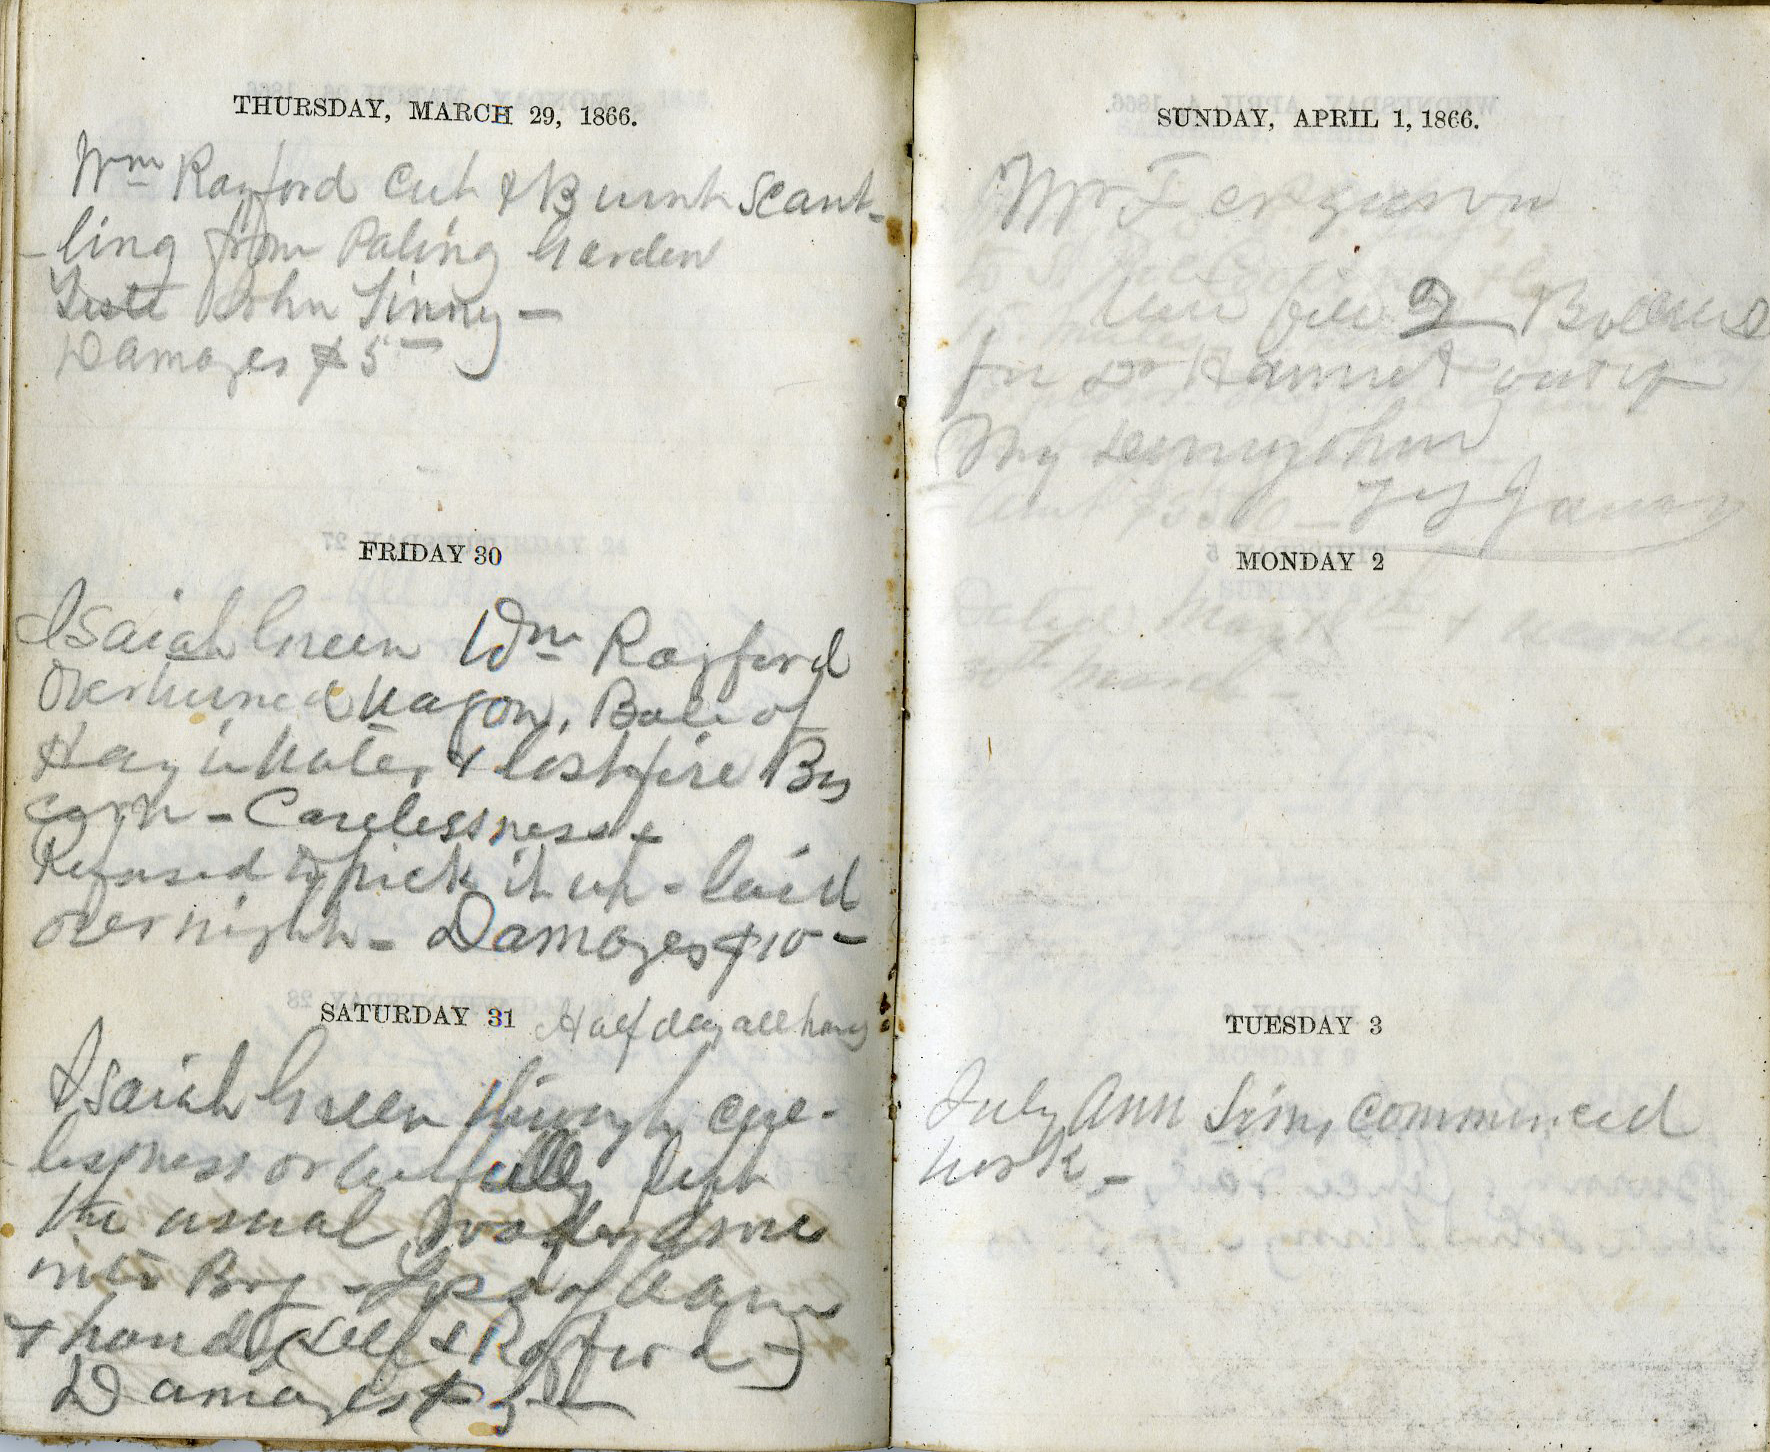 THURSDAY, MARCH 29, 1866.
Wm Rayford Cut & Burnt Scant-
-ling from Paling Garden
Teste John Tinny -
Damages $5 -
FRIDAY 30
Isaiah Green Wm Rayford
Overturned Wagon, Bale of
Hay in Water & lost five Bus
corn - Carelessness &
Refused to pick it up - laid
over night - Damages $10 -
SATURDAY 31
Half day all hands
Isaiah Green through care-
-lessness or wilfully left
the usual road & drove
into Bog - Loss of
& hand (Self & Rayford -)
Damages $ 5 -
SUNDAY, APRIL 1, 1866.
Mr Ferguson
2
for Dr out of
My Demyjohn
MONDAY 2
March -
TUESDAY 3
July Ann Sims Commenced
work -